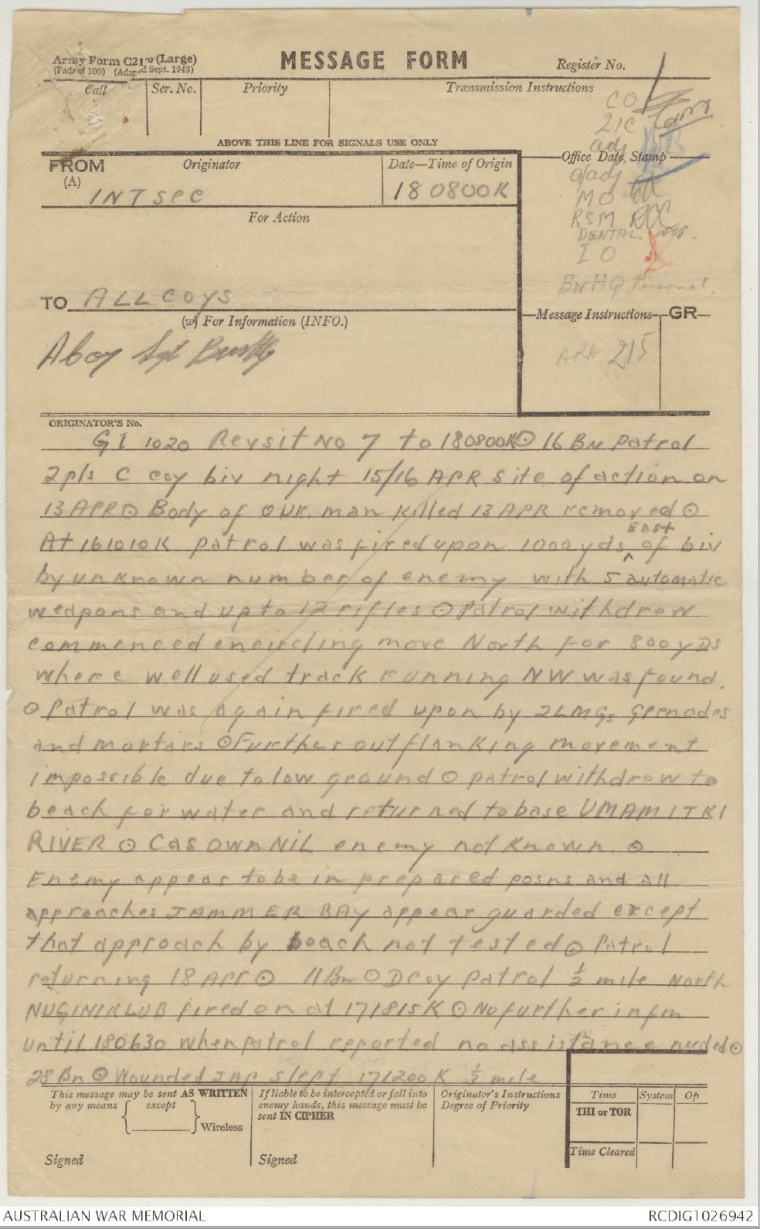 Army Form C2128 (Large)
(Pads of 100) (Adapted Sept. 1943)
MESSAGE FORM
Register No.
Call
Ser. No.
Priority
Transmission Instructions
ABOVE THIS LINE FOR SIGNALS USE ONLY
CO
2IC
adj
a/adj
MO
RSM
DENTAL
IO
BnHQ Personal
FROM
(A)
Originator
INTSEC
Date—Time of Origin
180800K
Office Date Stamp
For Action
TO ALL COYS
(w) For Information (INFO.)
Message Instructions
GR
215
ORIGINATOR'S No.
GI 1020 Revsit No 7 to 180800K⊙ 16 Bn patrol
2 pls C coy biv night 15/16 APR site of action on
13 APR⊙ Body of our man killed 13 APR removed ⊙
At 161010K patrol was fired upon 1000 yds EAST of biv
by unknown number of enemy with 5 automatic
weapons and up to 12 rifles ⊙ Patrol withdrew
commenced encircling move North for 800 yDS
where well used track running NW was found.
⊙ Patrol was again fired upon by 2 LMGs grenades
and mortars ⊙ Further outflanking movement
impossible due to low ground ⊙ patrol withdrew to
beach for water and returned to base UMAMITKI
RIVER ⊙ Cas own NIL enemy not known ⊙
Enemy appear to be in prepared posns and all
approaches JAMMER BAY appear guarded except
that approach by beach not tested ⊙ Patrol
returning 18 APR ⊙ 11 Bn ⊙ D coy patrol ½ mile North
NUGINIKLUB fired on at 171815K ⊙ No further infm
until 180630 when patrol reported no assistance needed ⊙
28 Bn ⊙ Wounded JAP slept 171200K ½ mile
This message may be sent AS WRITTEN
by any means
except
Wireless
Signed
If liable to be intercepted or fall into
enemy hands, this message must be
sent IN CIPHER
Signed
Originator's Instructions
Degree of Priority
Time
System
Op
THI or TOR
Time Cleared
AUSTRALIAN WAR MEMORIAL
RCDIG1026942